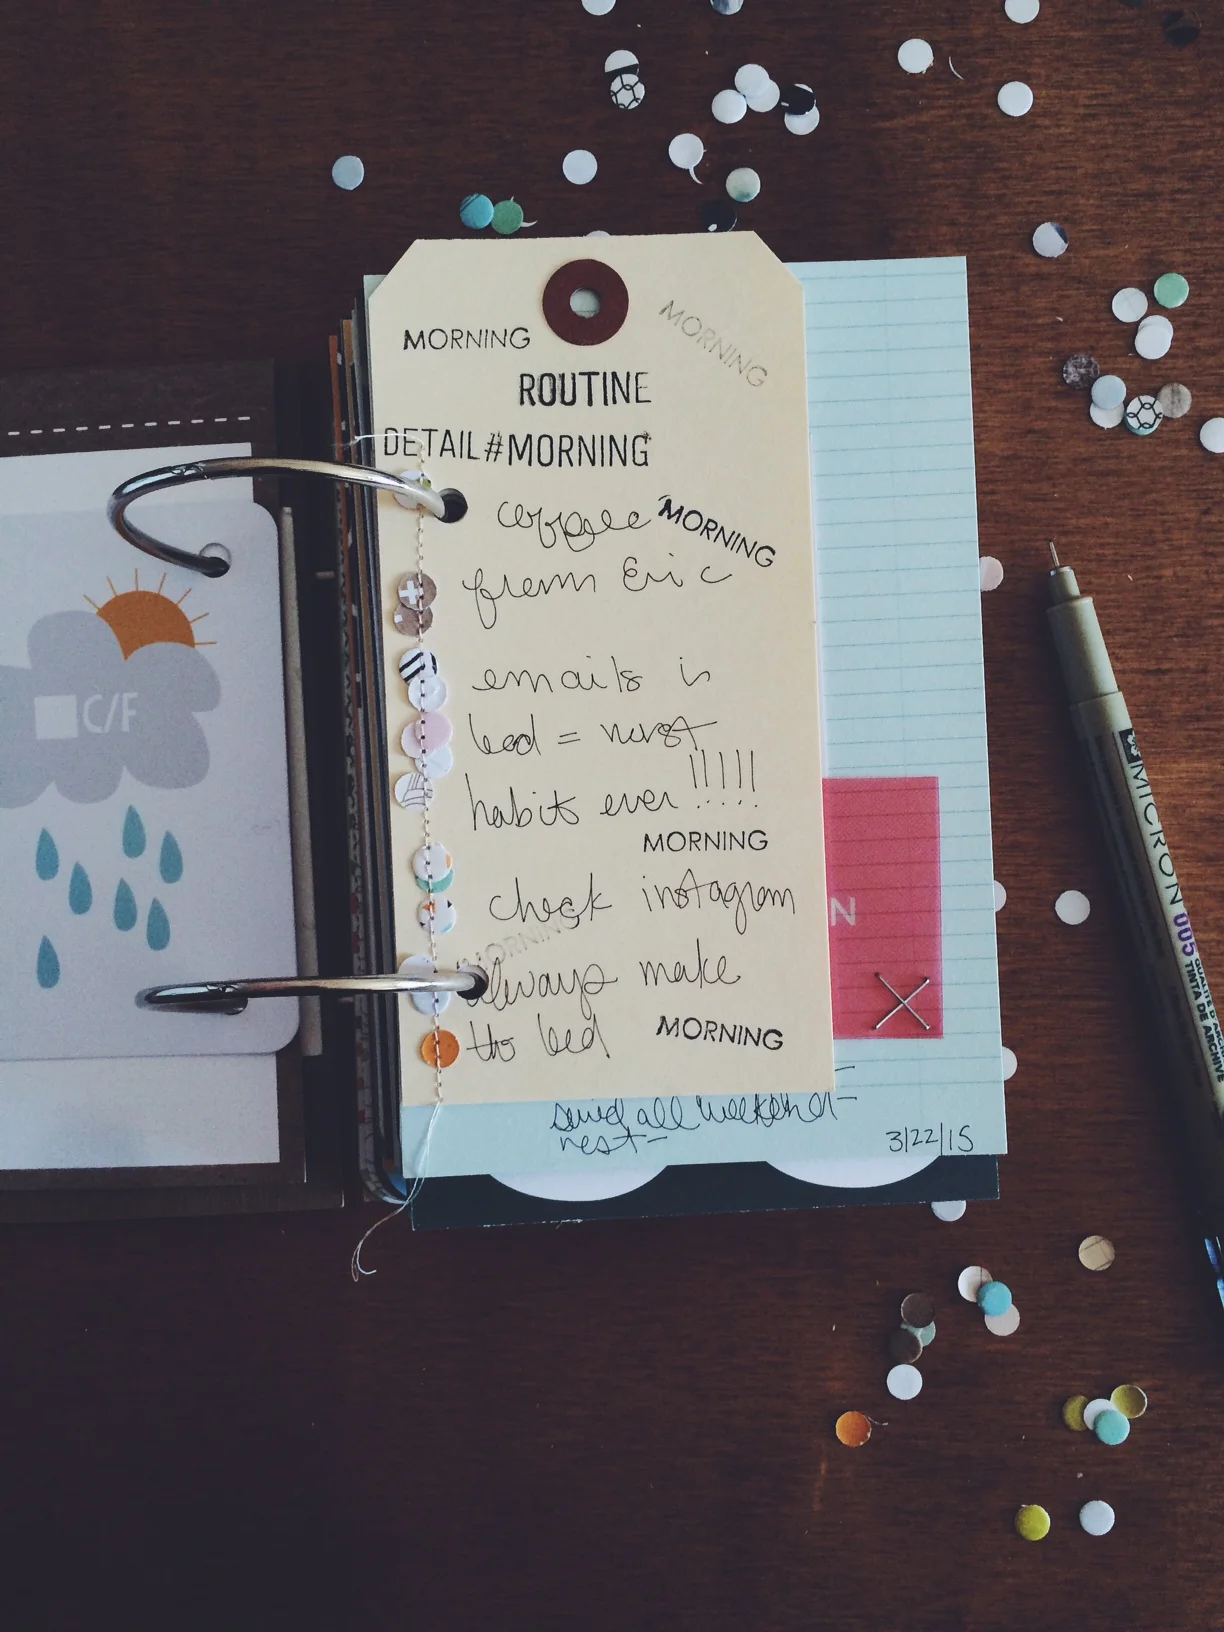 MORNING
MORNING
ROUTINE
DETAIL#MORNING
coffee MORNING
from Eric
emails in
bed = worst
habit ever !!!!!
MORNING
check instagram
MORNING
always make
the bed MORNING
all weekend -
rest -
3/22/15
C/F
N
MICRON 005
TINTA DE ARCHIVE